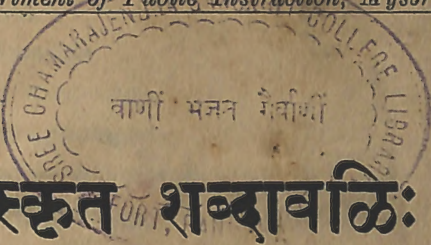 of Public Instruction, Mysor
SREE CHAMARAJENDRA COLLEGE LIBRARY
वाणीं भजन गैर्वाणीं
FORT,
स्कृत शब्दावळिः